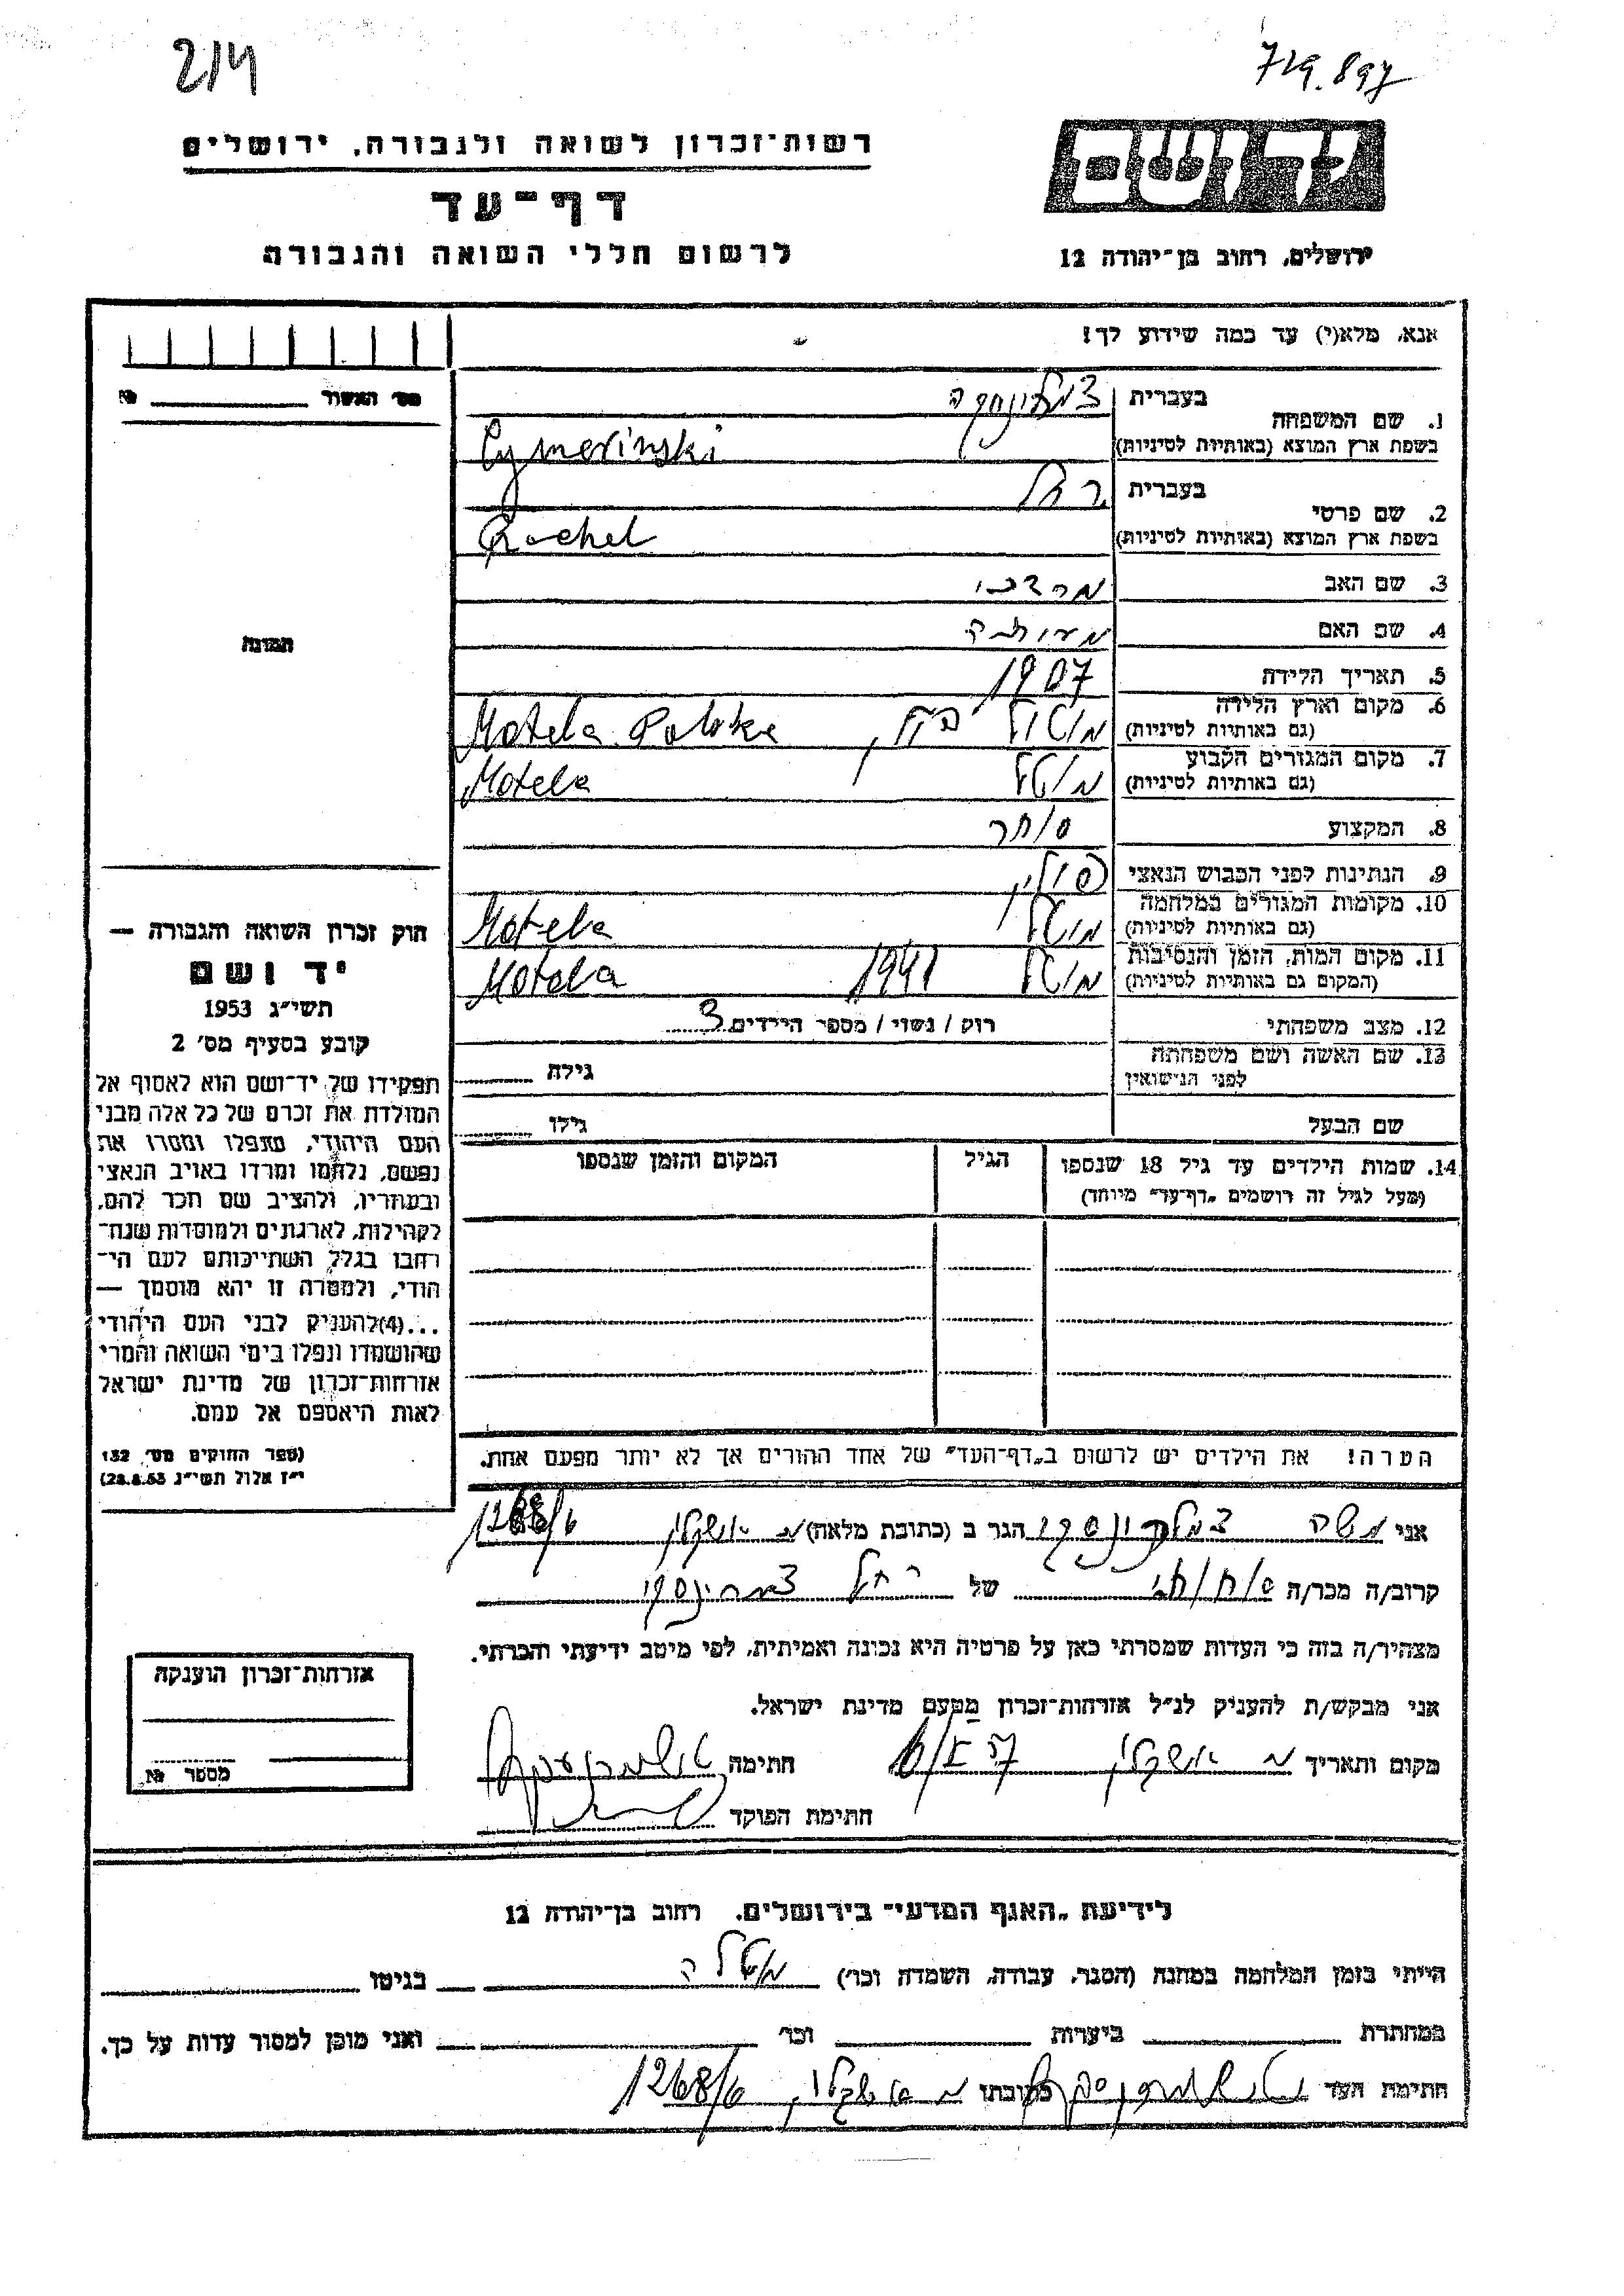 214
719.897
רשות־זכרון לשואה ולגבורה, ירושלים
דף־עד
לרשום חללי השואה והגבורה
ידושם
ירושלים, רחוב בן־יהודה 12
אנא, מלא(י) עד כמה שידוע לך!
מס׳ האשור № ______
1. שם המשפחה
בעברית
בשפת ארץ המוצא (באותיות לטיניות) Cymerinski
2. שם פרטי
בעברית רחל
בשפת ארץ המוצא (באותיות לטיניות) Rachel
3. שם האב מרדכי
4. שם האם
5. תאריך הלידה 1907
6. מקום וארץ הלידה
(גם באותיות לטיניות) Motela Polska
7. מקום המגורים הקבוע
(גם באותיות לטיניות) מוטלה Motela
8. המקצוע סוחר
9. הנתינות לפני הכבוש הנאצי פולין
10. מקומות המגורים במלחמה
(גם באותיות לטיניות) מוטלה Motela
11. מקום המות, הזמן והנסיבות
(המקום גם באותיות לטיניות) מוטלה 1941 Motela
12. מצב משפחתי רוק / נשוי / מספר הילדים 3
13. שם האשה ושם משפחתה
לפני הנישואין
גילה
שם הבעל גילו
14. שמות הילדים עד גיל 18 שנספו
(מעל לגיל זה רושמים „דף־עד״ מיוחד)
הגיל
המקום והזמן שנספו
הערה! את הילדים יש לרשום ב„דף־העד״ של אחד ההורים אך לא יותר מפעם אחת.
תמונה
חוק זכרון השואה והגבורה —
יד ושם
תשי״ג 1953
קובע בסעיף מס׳ 2
תפקידו של יד־ושם הוא לאסוף אל
המולדת את זכרם של כל אלה מבני
העם היהודי, שנפלו ומסרו את
נפשם, נלחמו ומרדו באויב הנאצי
ובעוזריו, ולהציב שם וזכר להם,
לקהילות, לארגונים ולמוסדות שנח־
רבו בגלל השתייכותם לעם הי־
הודי, ולמטרה זו יהא מוסמך —
...(4)להעניק לבני העם היהודי
שהושמדו ונפלו בימי השואה והמרי
אזרחות־זכרון של מדינת ישראל
לאות היאספם אל עמם.
(ספר החוקים מס׳ 132
י״ז אלול תשי״ג 28.8.53)
אני משה הגר ב (כתובת מלאה) אשקלון
קרוב/ה מכר/ה של רחל
מצהיר/ה בזה כי העדות שמסרתי כאן על פרטיה היא נכונה ואמיתית, לפי מיטב ידיעתי והכרתי.
אני מבקש/ת להעניק לנ״ל אזרחות־זכרון מטעם מדינת ישראל.
מקום ותאריך אשקלון חתימה
חתימת הפוקד
אזרחות־זכרון הוענקה
מספר №
לידיעת „האגף המדעי״ בירושלים, רחוב בן־יהודה 12
הייתי בזמן המלחמה במחנה (הסגר, עבודה, השמדה וכר׳) מוטלה בגיטו
במחתרת ביערות וכר׳ ואני מוכן למסור עדות על כך.
חתימת העד כתובתו אשקלון, 1268/6